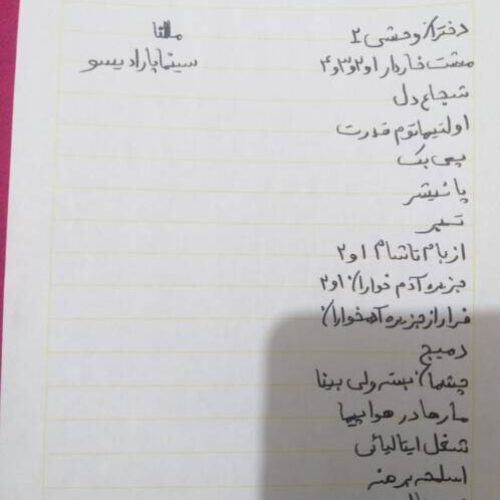 دختران وحشی ۲
مشت خاردار ۱و۲و۳و۴
شجاع دل
اولتیماتوم قدرت
پی بک
پانیشر
از بام تا شام ۱و۲
جزیره آدم خواران ۱و۲
فرار از جزیره آدمخواران
دمیج
چشمان بسته ولی بینا
مارها در هواپیما
شغل ایتالیائی
اسلحه برهنه
مالنا
سینما پارادیسو